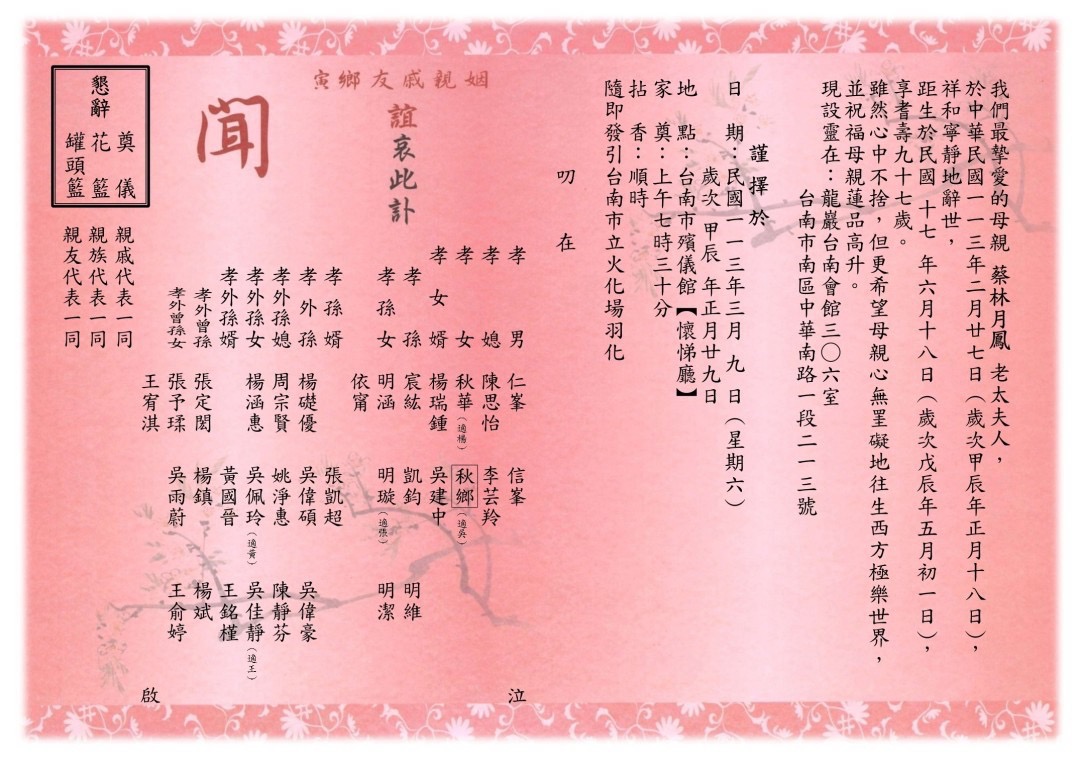 我們最摯愛的母親 蔡林月鳳 老太夫人，
於中華民國一一三年二月廿七日（歲次甲辰年正月十八日），
祥和寧靜地辭世，
距生於民國 十七 年六月十八日（歲次戊辰年五月初一日），
享耆壽九十七歲。
雖然心中不捨，但更希望母親心無罣礙地往生西方極樂世界，
並祝福母親蓮品高升。
現設靈在：龍巖台南會館三〇六室
台南市南區中華南路一段二一三號
謹擇於
日 期：民國一一三年三月 九 日（星期六）
歲次 甲辰 年正月廿九日
地 點：台南市殯儀館【懷悌廳】
家 奠：上午七時三十分
拈 香：順時
隨即發引台南市立火化場羽化
叨 在
姻親戚友鄉寅
誼哀此訃
聞
孝男 仁峯 信峯 泣
孝媳 陳思怡 李芸羚
孝女 秋華（適楊） 秋鄉（適吳）
孝女婿 楊瑞鍾 吳建中
孝孫 宸紘 凱鈞 明維
孝孫女 明涵 明璇（適張） 明潔
依甯
孝孫婿 張凱超
孝外孫 楊礎優 吳偉碩 吳偉豪
孝外孫媳 周宗賢 姚淨惠 陳靜芬
孝外孫女 楊涵惠 吳佩玲（適黃） 吳佳靜（適王）
孝外孫婿 黃國晉 王銘槿
孝外曾孫 張定閎 楊鎮 楊斌
孝外曾孫女 張予瑈 吳雨蔚 王俞婷
王宥淇 啟
親戚代表一同
親族代表一同
親友代表一同
懇辭
奠儀
花籃
罐頭籃